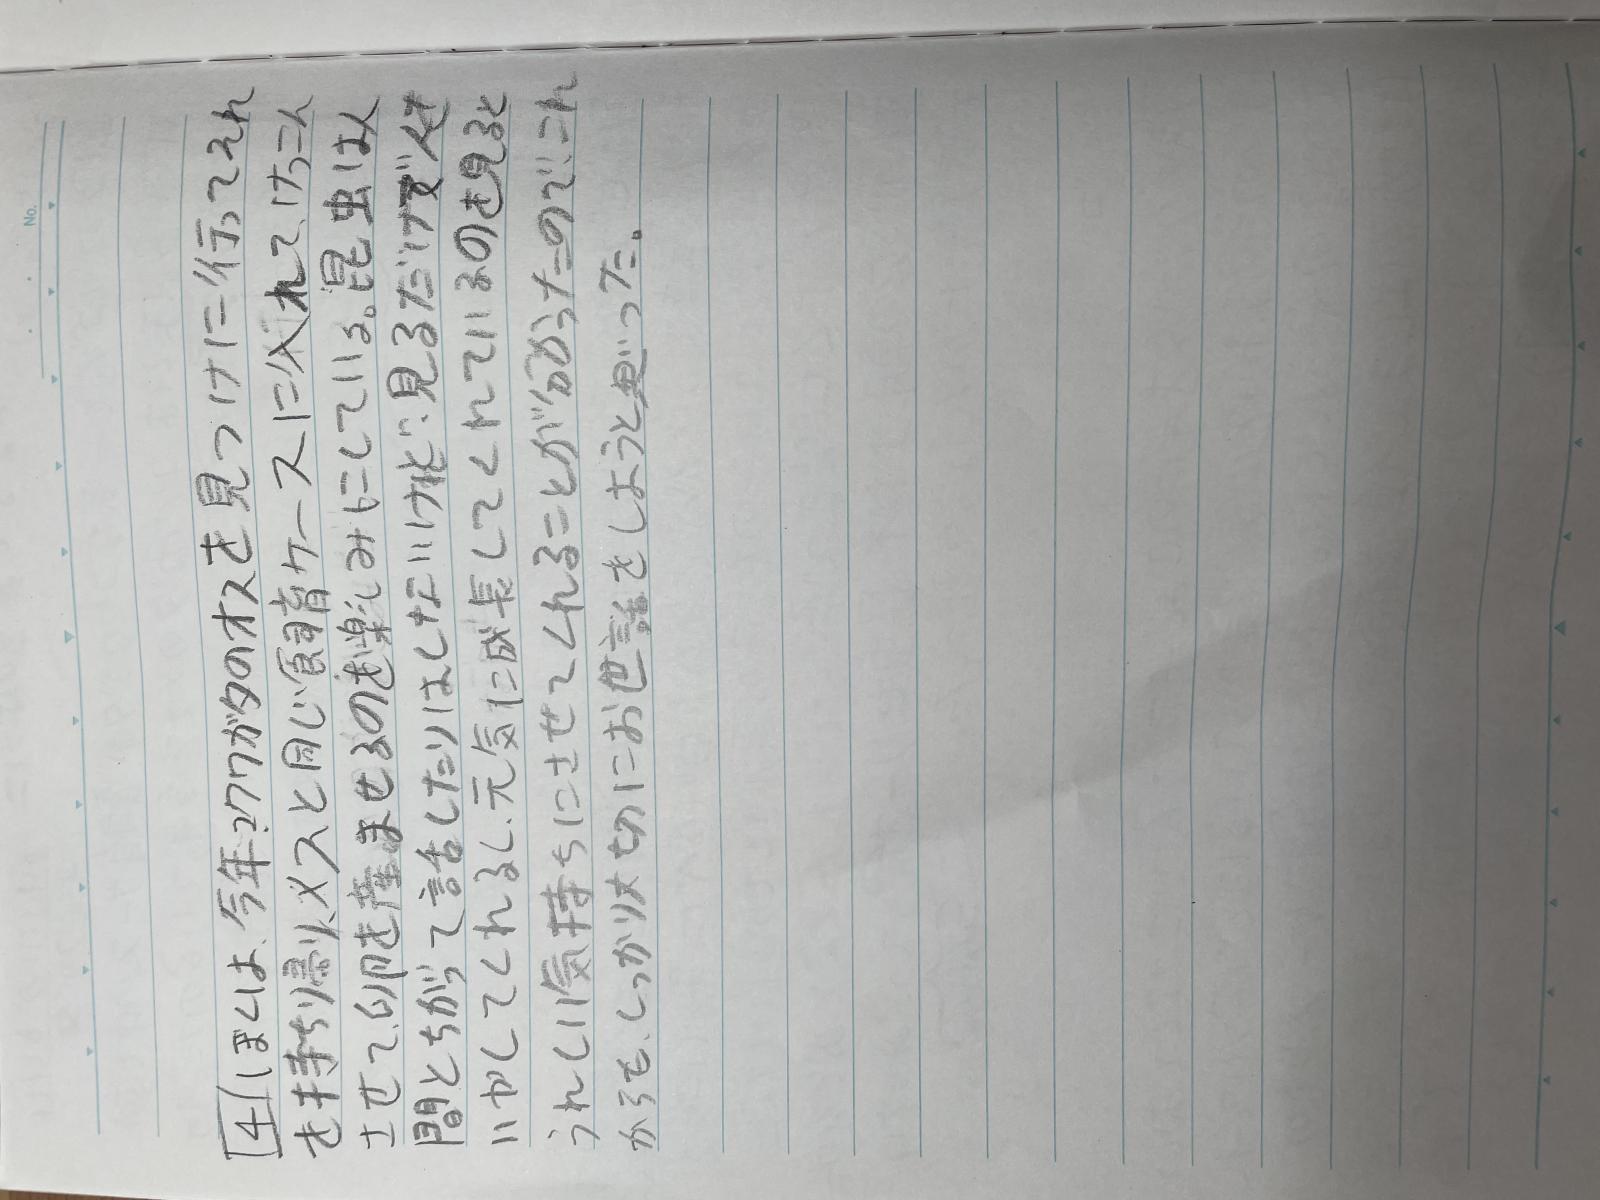 No.
4 ぼくは、今年、クワガタのオスを見つけに行ってそれ
を持ち帰り、メスと同じ飼育ケースに入れて、けっこん
させて、卵を産ませるのを楽しみにしている。昆虫は人
間とちがって話したりはしないけれど、見るだけで
いやしてくれるし、元気に成長してくれているのを見ると
うれしい気持ちにさせてくれることが分かったのでこれ
からも、しっかり大切にお世話をしようと思った。